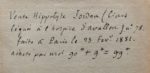 Vente Hippolyte Joidan / Livre
légué à l'hospice d'Avallon qu. 78.
faite à Paris le 23 févr 1881.
acheté par moi 90 + 9 = 99